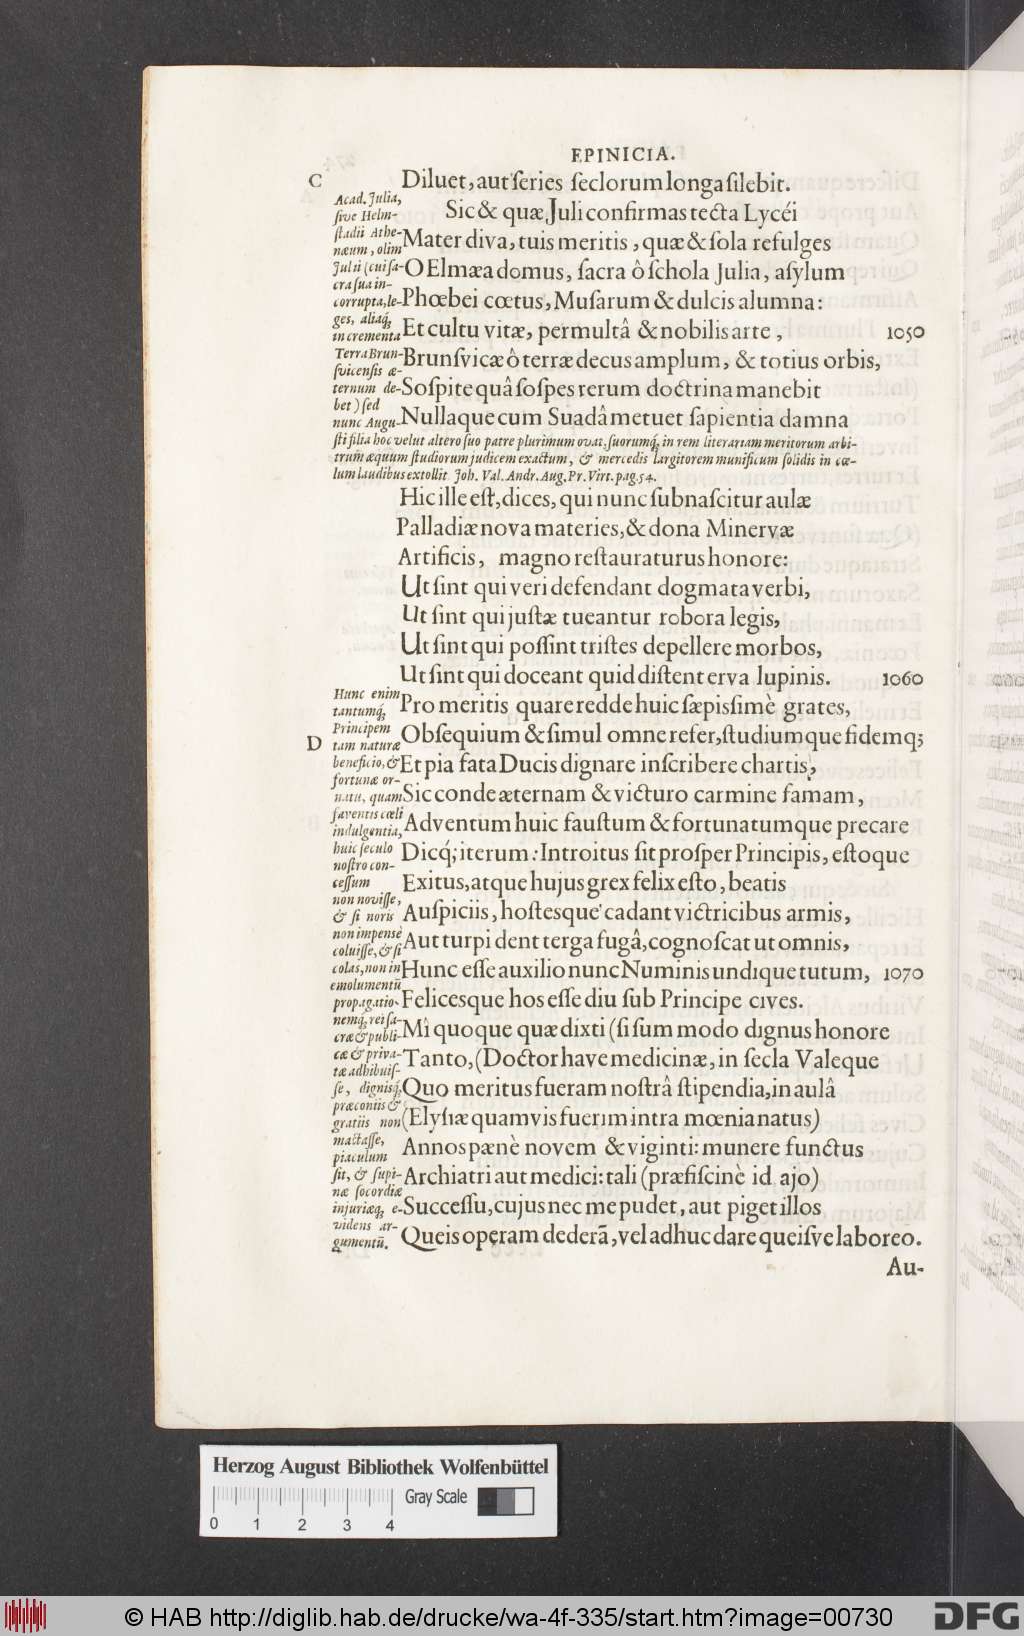 EPINICIA.
C
Diluet, aut series seclorum longa silebit.
Sic & quæ Juli confirmas tecta Lycéi
Mater diva, tuis meritis, quæ & sola refulges
O Elmæa domus, sacra ô schola Julia, asylum
Phœbei cœtus, Musarum & dulcis alumna:
Et cultu vitæ, permultâ & nobilis arte, 1050
Brunsvicæ ô terræ decus amplum, & totius orbis,
Sospite quâ sospes rerum doctrina manebit
Nullaque cum Suadâ metuet sapientia damna
Acad. Julia,
sive Helm-
stadii Athe-
næum, olim
Julii (cui sa-
cra sua in-
corrupta, le-
ges, aliaq́,
incrementa
Terra Brun-
svicensis æ-
ternum de-
bet) sed
nunc Augu-
sti filia hoc velut altero suo patre plurimum ovat, suorumq́, in rem literariam meritorum arbi-
trum æquum studiorum judicem exactum, & mercedis largitorem munificum solidis in cœ-
lum laudibus extollit. Joh. Val. Andr. Aug. Pr. Virt. pag. 54.
Hic ille est, dices, qui nunc subnascitur aulæ
Palladiæ nova materies, & dona Minervæ
Artificis, magno restauraturus honore:
Ut sint qui veri defendant dogmata verbi,
Ut sint qui justæ tueantur robora legis,
Ut sint qui possint tristes depellere morbos,
Ut sint qui doceant quid distent erva lupinis. 1060
Pro meritis quare redde huic sæpissimè grates,
D
Obsequium & simul omne refer, studiumque fidemq;
Et pia fata Ducis dignare inscribere chartis,
Sic conde æternam & victuro carmine famam,
Adventum huic faustum & fortunatumque precare
Dicq́; iterum: Introitus sit prosper Principis, estoque
Exitus, atque hujus grex felix esto, beatis
Auspiciis, hostesque cadant victricibus armis,
Aut turpi dent terga fugâ, cognoscat ut omnis,
Hunc esse auxilio nunc Numinis undique tutum, 1070
Felicesque hos esse diu sub Principe cives.
Mî quoque quæ dixti (si sum modo dignus honore
Tanto, (Doctor have medicinæ, in secla Valeque
Quo meritus fueram nostrâ stipendia, in aulâ
(Elysiæ quamvis fuerim intra mœnia natus)
Annos pænè novem & viginti: munere functus
Archiatri aut medici: tali (præfiscinè id ajo)
Successu, cujus nec me pudet, aut piget illos
Queis operam dederā, vel adhuc dare queisve laboreo.
Hunc enim
tantumq́,
Principem
tam naturæ
beneficio, &
fortunæ or-
natu, quam
faventis cœli
indulgentia,
huic seculo
nostro con-
cessum
non novisse,
& si noris
non impensè
coluisse, & si
colas, non in
emolumentū
propagatio-
nemq́, rei sa-
cræ & publi-
cæ & priva-
tæ adhibuis-
se, dignisq́,
præconiis &
gratiis non
mactasse,
piaculum
sit, & supi-
næ socordiæ
injuriæq́, e-
videns ar-
gumentū.
Au-
Herzog August Bibliothek Wolfenbüttel
Gray Scale
0 1 2 3 4
© HAB http://diglib.hab.de/drucke/wa-4f-335/start.htm?image=00730
DFG